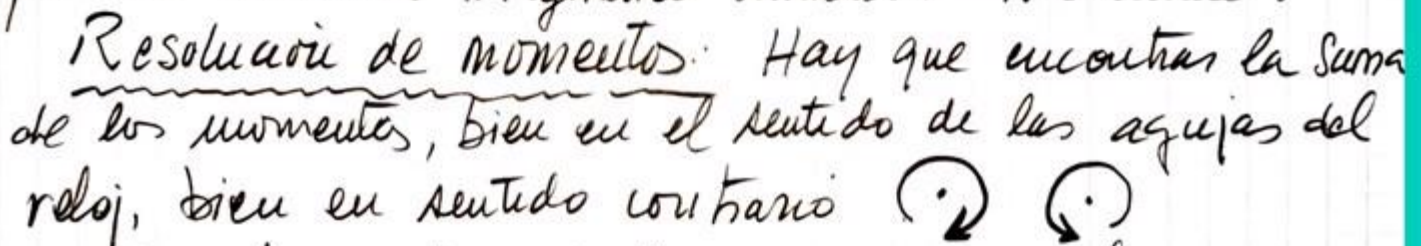 Resolución de momentos. Hay que encontrar la Suma
de los momentos, bien en el sentido de las agujas del
reloj, bien en sentido contrario